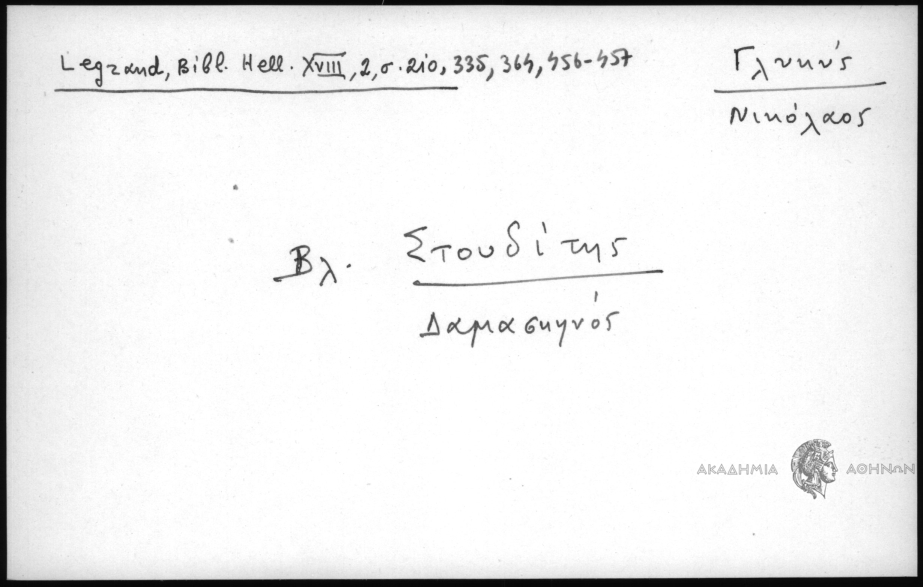 Legrand, Bibl. Hell. XVIII, 2, σ. 210, 335, 364, 456-457
Γλυκύς
Νικόλαος
Βλ. Στουδίτης
Δαμασκηνός
ΑΚΑΔΗΜΙΑ ΑΘΗΝΩΝ